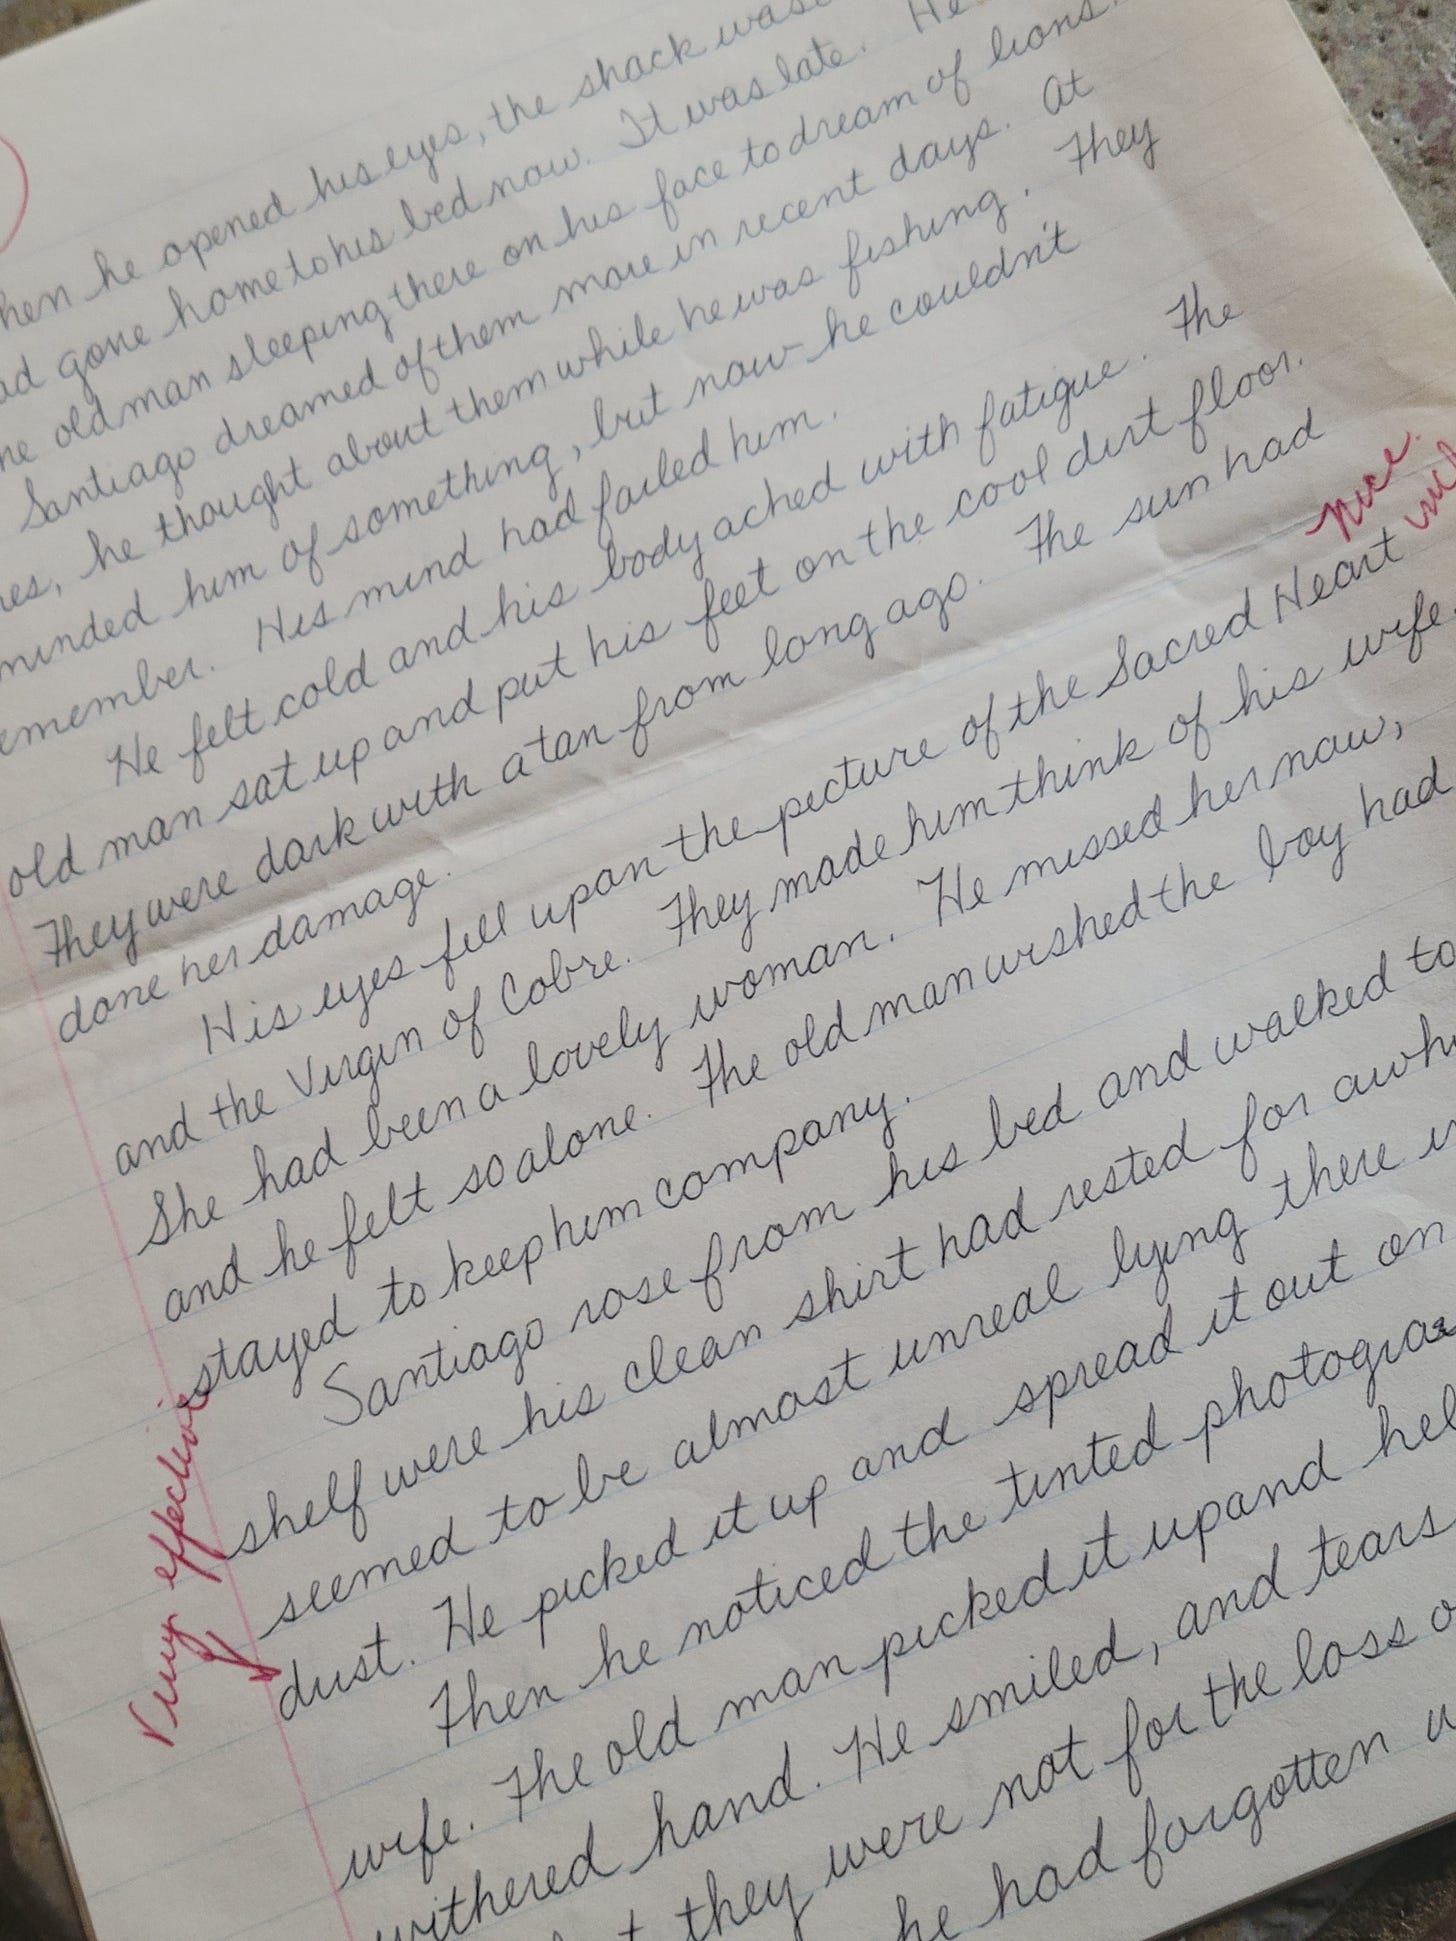 hen he opened his eyes, the shack was
ad gone home to his bed now. It was late. He
he old man sleeping there on his face to dream of lions.
Santiago dreamed of them more in recent days. At
mes, he thought about them while he was fishing. They
minded him of something, but now he couldn't
emember. His mind had failed him.
He felt cold and his body ached with fatigue. The
old man sat up and put his feet on the cool dirt floor.
They were dark with a tan from long ago. The sun had
done her damage.
nice.
His eyes fell upon the picture of the Sacred Heart
and the Virgin of Cobre. They made him think of his wife.
She had been a lovely woman. He missed her now,
and he felt so alone. The old man wished the boy had
stayed to keep him company.
Santiago rose from his bed and walked to
shelf were his clean shirt had rested for awhi
seemed to be almost unreal lying there i
dust. He picked it up and spread it out on
Very effective
Then he noticed the tinted photogra
wife. The old man picked it up and hel
withered hand. He smiled, and tears
t they were not for the loss o
he had forgotten